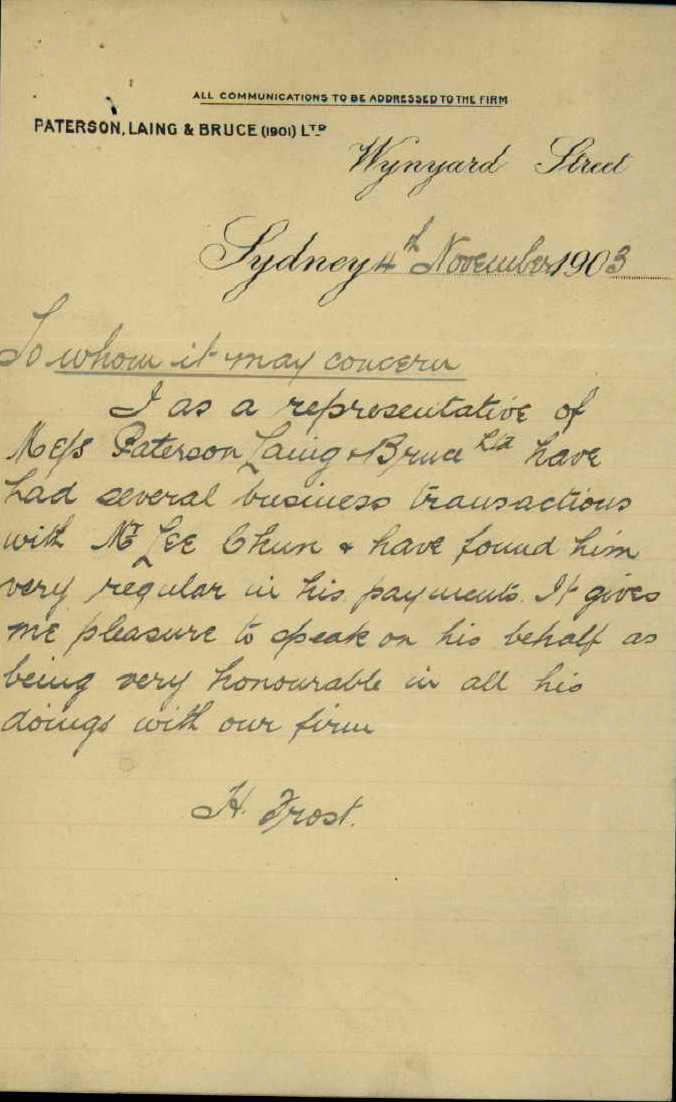 ALL COMMUNICATIONS TO BE ADDRESSED TO THE FIRM
PATERSON, LAING & BRUCE (1901) LTD
Wynyard Street
Sydney 4th November 1903
To whom it may concern
I as a representative of
Mess Paterson Laing & Bruce Ltd have
had several business transactions
with Mr Lee Chun & have found him
very regular in his payments. It gives
me pleasure to speak on his behalf as
being very honourable in all his
doings with our firm
H. Frost.